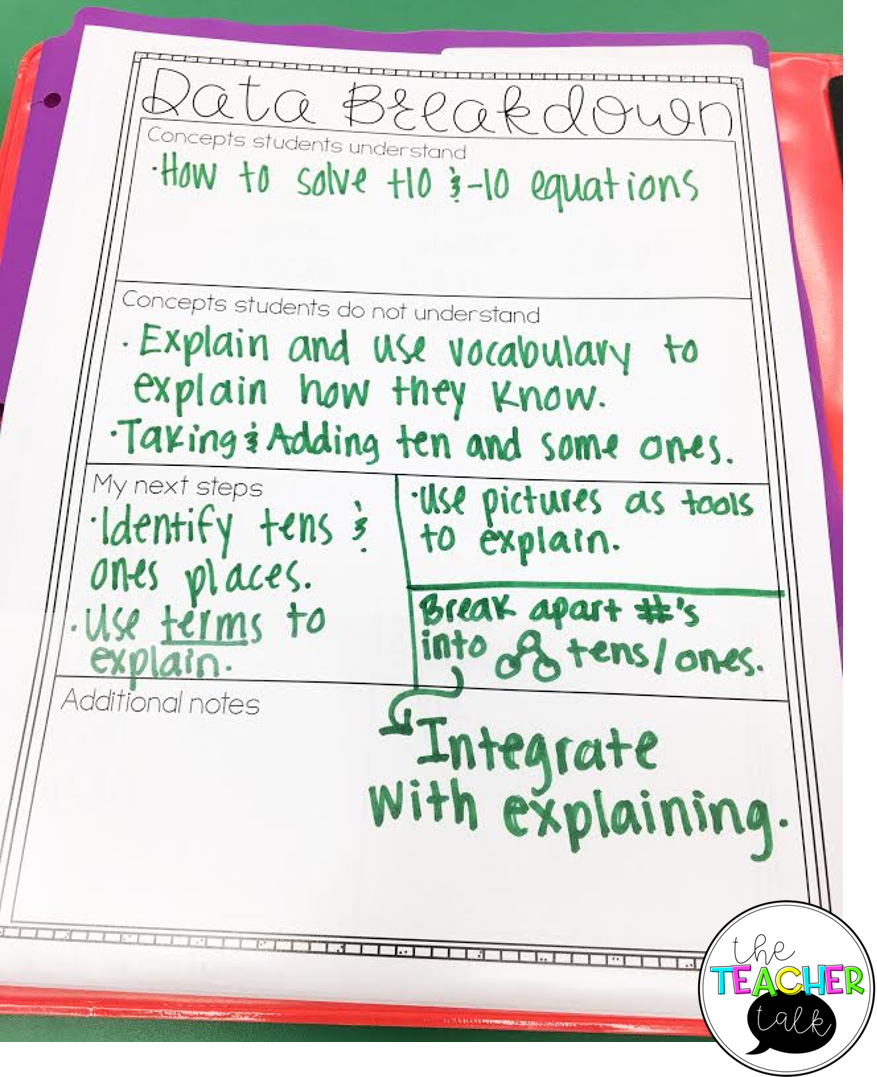 Data Breakdown
Concepts students understand
·How to solve +10 & -10 equations
Concepts students do not understand
· Explain and use vocabulary to
explain how they know.
·Taking & Adding ten and some ones.
My next steps
·Identify tens &
ones places.
·Use terms to
explain.
·Use pictures as tools
to explain.
Break apart #'s
into tens/ones.
Additional notes
Integrate
with explaining.
the
TEACHER
talk